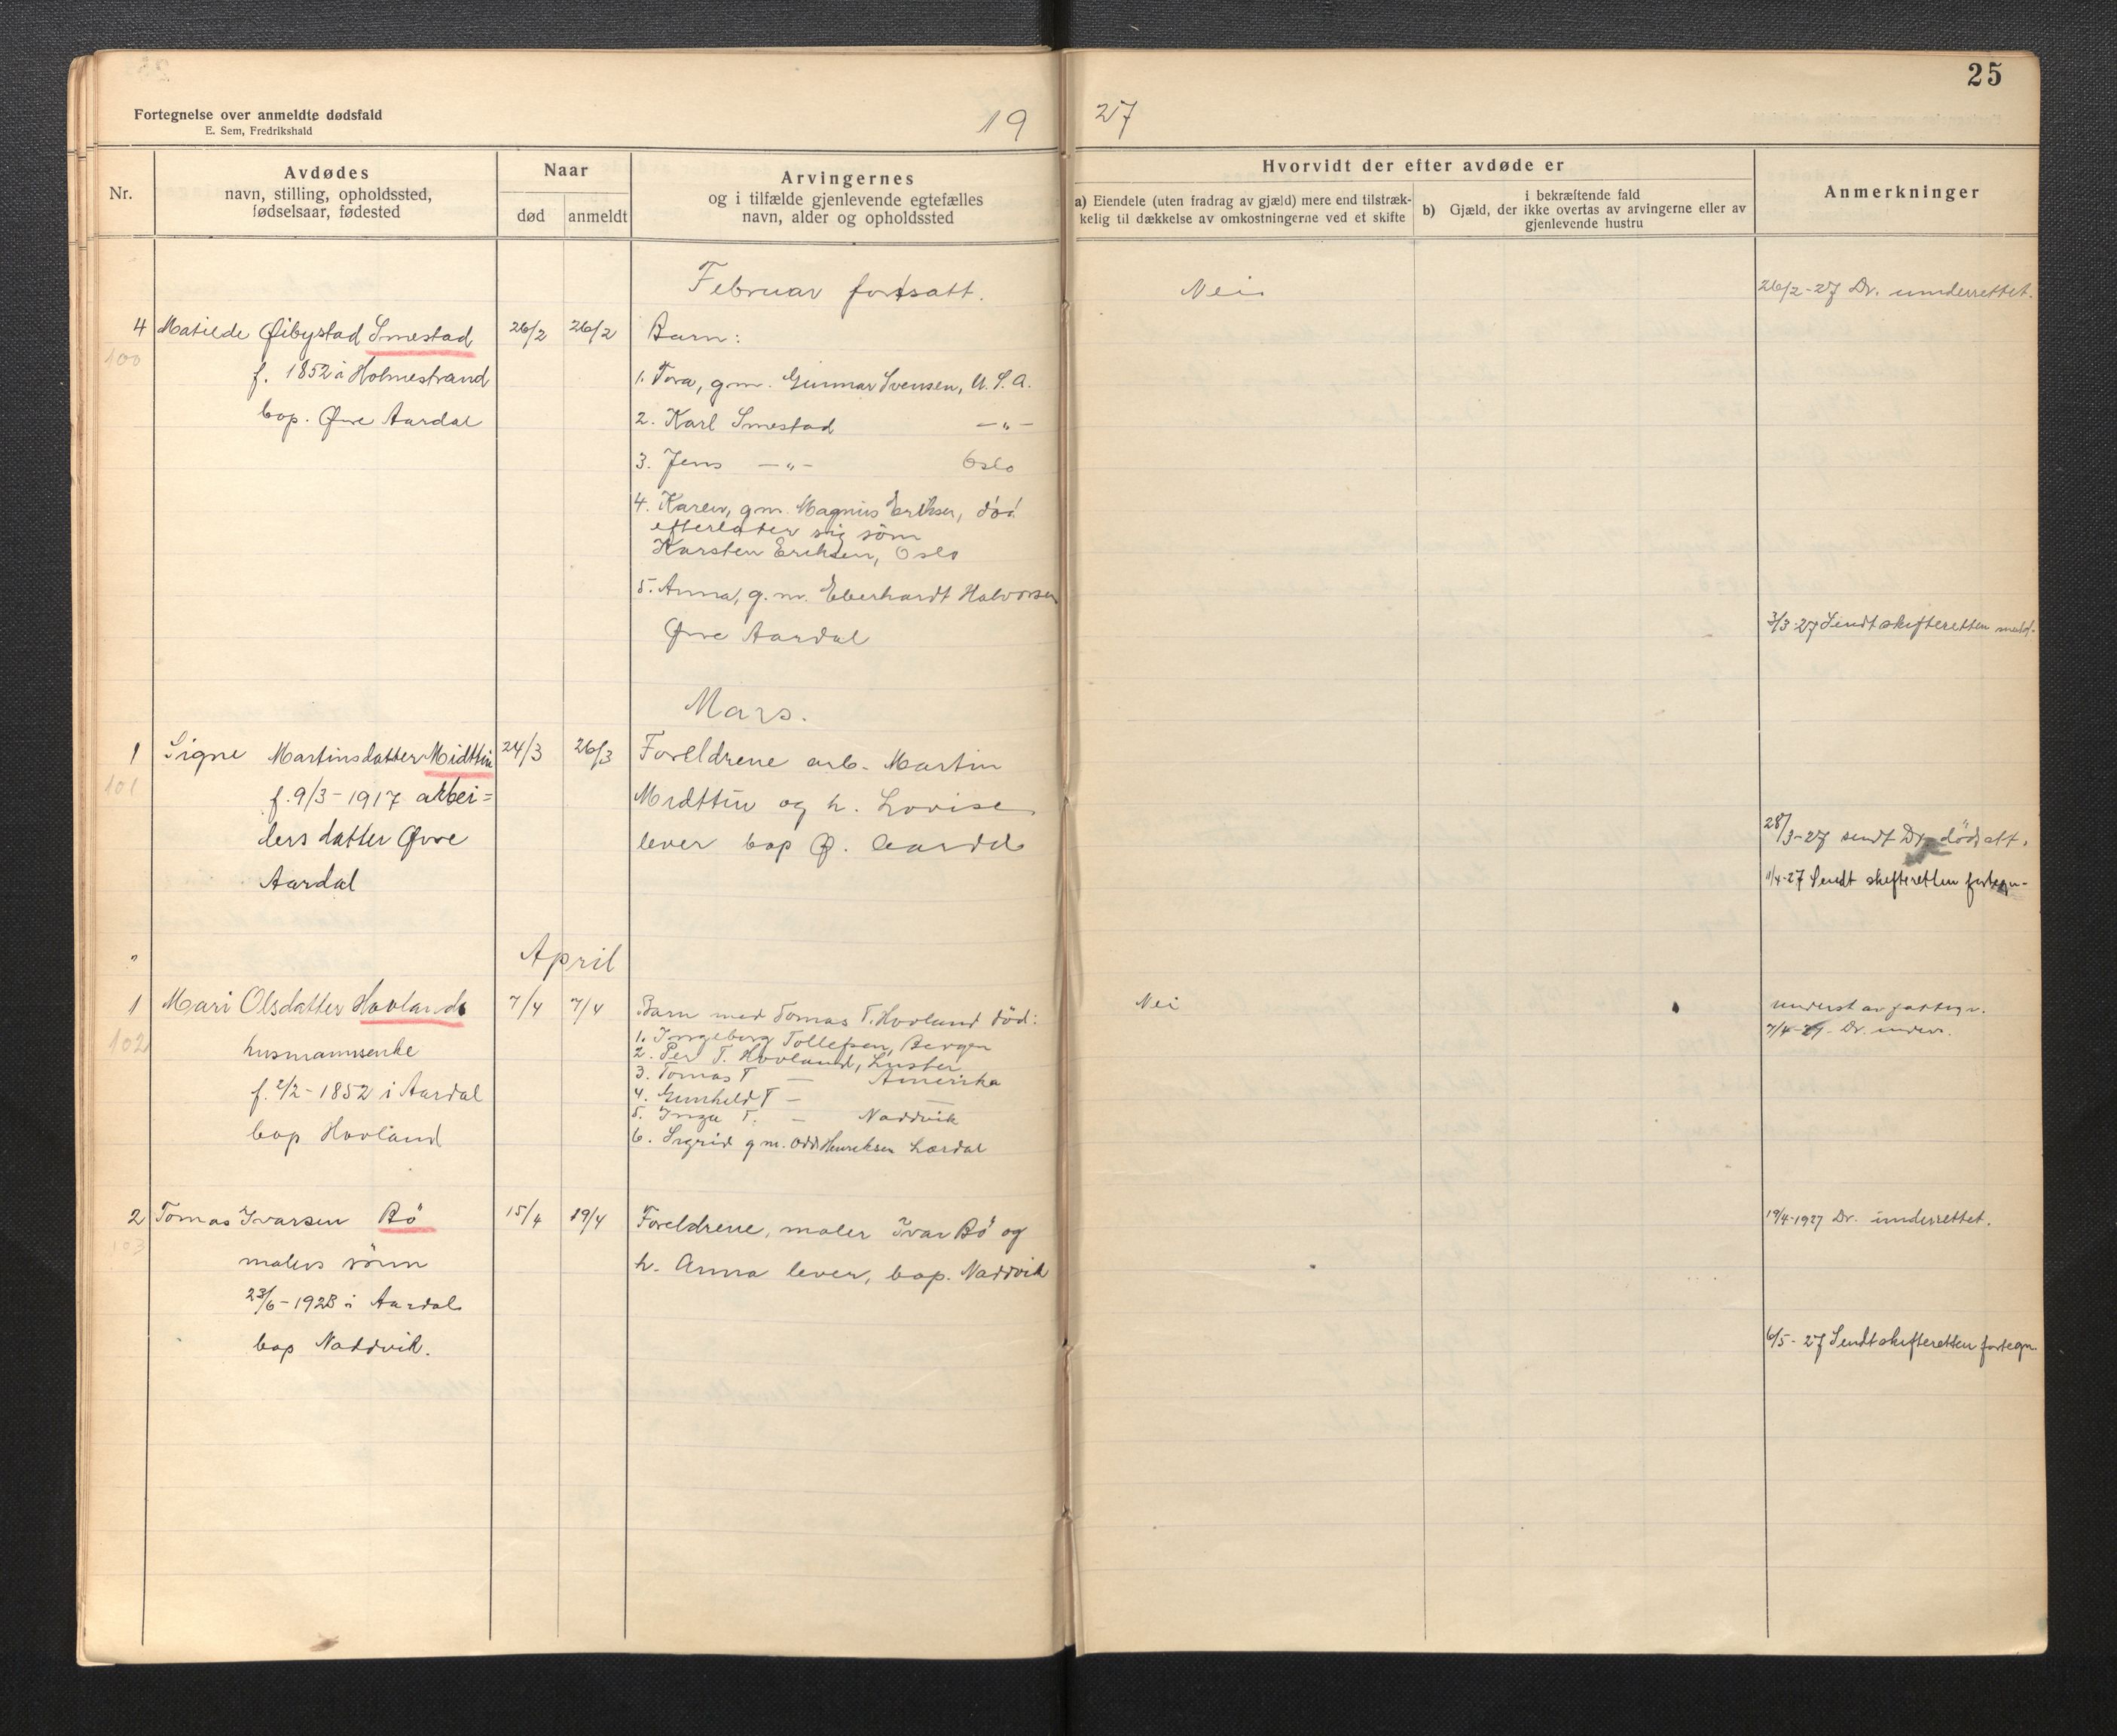 25
Fortegnelse over anmeldte dødsfald
E. Sem, Fredrikshald
19 27
Nr.
Avdødes
navn, stilling, opholdssted,
fødselsaar, fødested
Naar
død
anmeldt
Arvingernes
og i tilfælde gjenlevende egtefælles
navn, alder og opholdssted
Hvorvidt der efter avdøde er
a) Eiendele (uten fradrag av gjæld) mere end tilstræk-
kelig til dækkelse av omkostningerne ved et skifte
i bekræftende fald
b) Gjæld, der ikke overtas av arvingerne eller av
gjenlevende hustru
Anmerkninger
Februar fortsatt.
Nei
26/2-27 Dr. underrettet.
4 Matilde Øibystad Smestad 26/2 26/2 Barn:
100
f. 1852 i Holmestrand
bop. Øvre Aardal
1. Tora, g.m. Gunnar Svensen, U.S.A.
2. Karl Smestad —„—
3. Jens —„— Oslo
4. Karen, gm. Magnus Eriksen, død
efterlater sig søn
Karsten Eriksen, Oslo
5. Anna, g.m. Eberhardt Halvorsen
Øvre Aardal
3/3-27 Sendt skifteretten meld.
Mars.
1 Signe Martinsdatter Midttun 24/3 26/3 Foreldrene arb. Martin
101
f. 9/3-1917 arbei=
ders datter Øvre
Aardal
Midttun og h. Lovise
lever bop Ø. Aardal
28/3-27 sendt Dr. dødsatt.
11/4-27 Sendt skifteretten fortegn-
April
1 Mari Olsdatter Hovland 7/4 7/4 Barn med Tomas T. Hovland død:
102
husmannsenke
f. 2/2-1852 i Aardal
bop Hovland
1. Ingeborg Tollefsen, Bergen
2. Per T. Hovland, Luster
3. Tomas T — Amerika
4. Gunheld T — —
5. Inga T. — Naddvik
6. Sigrid g m. Odd Henriksen Lærdal
Nei
7/4-27. Dr. underr.
2 Tomas Ivarsen Bö 15/4 19/4 Foreldrene, maler Ivar Bö og
103
malers sönn
23/6-1923 i Aardal
bop Naddvik.
h. Anna lever, bop. Naddvik
19/4-1927 Dr. underrettet.
6/5-27 Sendt skifteretten fortegn.